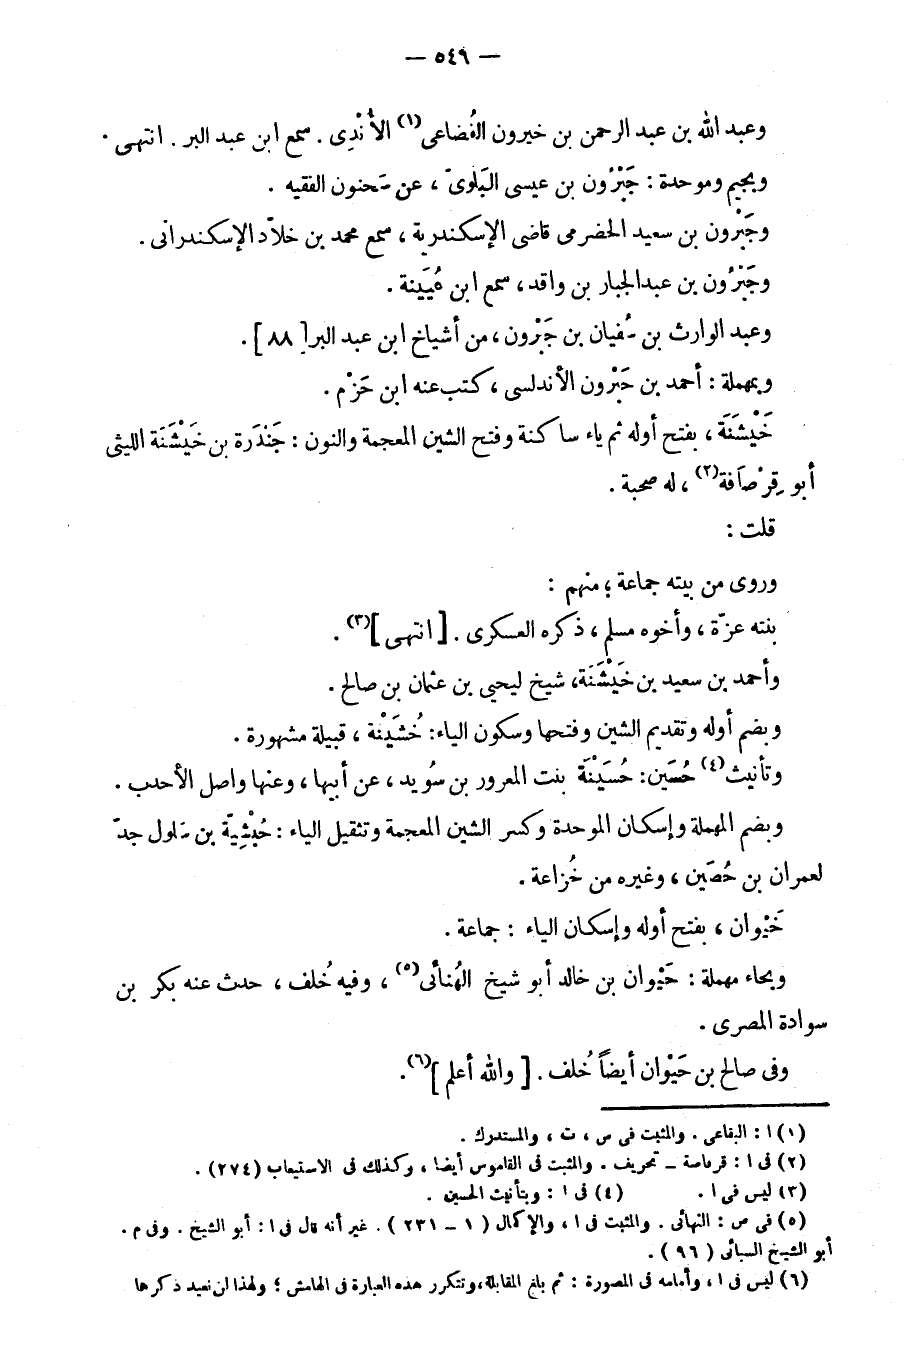 — ٥٤٩ —
وعبد الله بن عبد الرحمن بن خيرون القُضاعى(١) الأُنْدِى . سمع ابن عبد البر . انتهى .
وبجيم وموحدة : جَبْرُون بن عيسى البَلَوىّ ، عن سَحنون الفقيه .
وجَبْرون بن سعيد الحضرمى قاضى الإسكندرية ، سمع محمد بن خلاّد الإسكندرانى .
وجَبْرُون بن عبدالجبار بن واقد ، سمع ابن عُيَيَنة .
وعبد الوارث بن سُفيان بن جَبْرون ، من أشياخ ابن عبد البر [ ٨٨ ] .
وبمهملة : أحمد بن حَبْرون الأندلسى ، كتب عنه ابن حَزْم .
خَيْشَنَة ، بفتح أوله ثم ياء ساكنة وفتح الشين المعجمة والنون : جَنْدَرة بن خَيْشَنَة الليثى
أبو قِرْصاَفة(٢) ، له صحبة .
قلت :
وروى من بيته جماعة ؛ منهم :
بنته عزّة ، وأخوه مسلم ، ذكره العسكرى . [ انتهى ](٣) .
وأحمد بن سعيد بن خَيْشَنَة، شيخ ليحيى بن عثمان بن صالح .
وبضم أوله وتقديم الشين وفتحها وسكون الياء : خُشَيْنة ، قبيلة مشهورة .
وتأنيث(٤) حُسَين : حُسَيْنَة بنت المعرور بن سُويد ، عن أبيها ، وعنها واصل الأحدب .
وبضم المهملة وإسكان الموحدة وكسر الشين المعجمة وتثقيل الياء : حُبْشِيّة بن سَلول جدّ
لعمران بن حُصَين ، وغيره من خُزاعة .
خَيْوان ، بفتح أوله وإسكان الياء : جماعة .
وبحاء مهملة : حَيْوان بن خالد أبو شيخ الهُنائى(٥) ، وفيه خُلف ، حدث عنه بكر بن
سوادة المصرى .
وفى صالح بن حَيْوان أيضاً خُلف . [ والله أعلم ](٦) .
(١) ا : البقاعى . والمثبت فى س ، ت ، والمستدرك .
(٢) فى ا : قرماصة – تحريف . والمثبت فى القاموس أيضا ، وكذلك فى الاستيعاب (٢٧٤) .
(٣) ليس فى ا . (٤) فى ا : وبتأنيث الحسين .
(٥) فى ص : النهائى . والمثبت فى ا ، والإكمال ( ١ – ٢٣١ ) . غير أنه قال فى ا : أبو الشيخ . وفى م .
أبو الشيخ السبائى ( ٩٦ ) .
(٦) ليس فى ا ، وأمامه فى المصورة : ثم بلغ المقابلة ، وتتكرر هذه العبارة فى الهامش ؛ ولهذا لن نعيد ذكرها